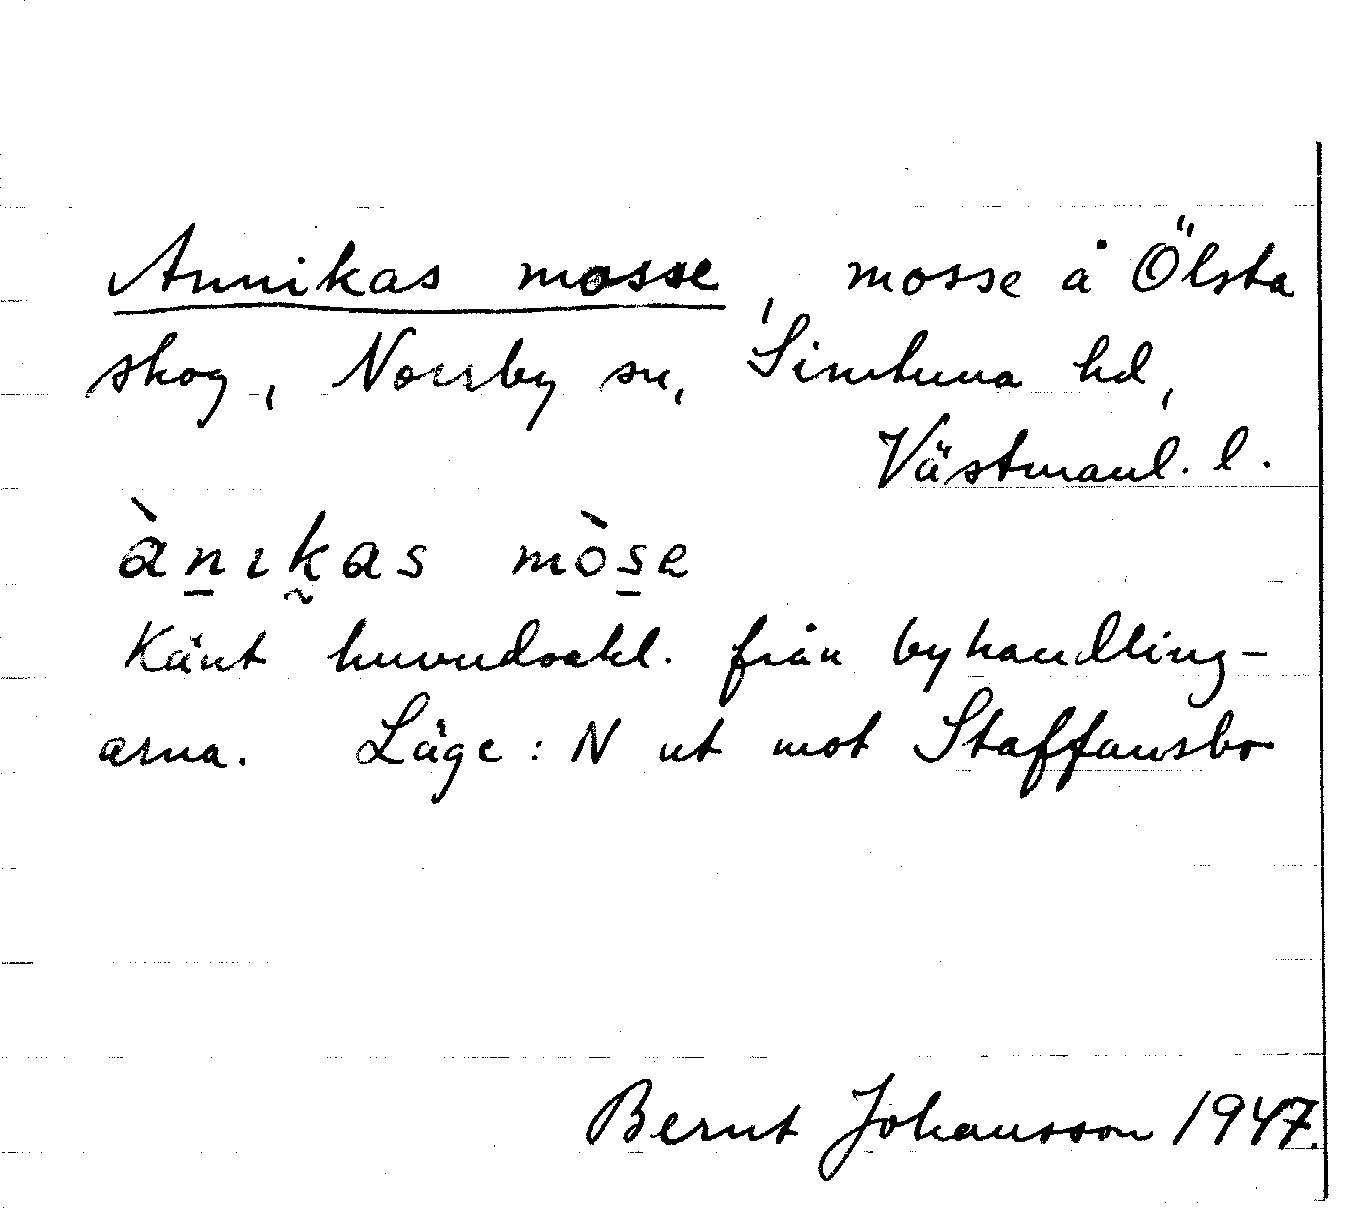 Annikas mosse, mosse å Ölsta
skog, Norrby sn, Simtuna hd,
Västmanl. l.
ànıkas mòse
Känt huvudsakl. från byhandling-
arna. Läge: N ut mot Staffansbo
Bernt Johansson 1947.